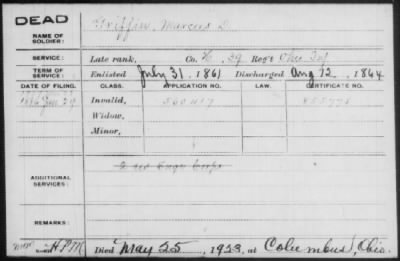 DEAD
NAME OF SOLDIER: Griffin, Marcus D.
SERVICE: Late rank, Co. K, 39 Reg't Ohio Inf
TERM OF SERVICE: Enlisted July 31, 1861 Discharged Aug 12, 1864
DATE OF FILING. CLASS. APPLICATION NO. LAW. CERTIFICATE NO.
1886 Invalid,
Widow,
Minor,
ADDITIONAL SERVICES:
REMARKS:
Died May 25, 1923, at Columbus, Ohio.